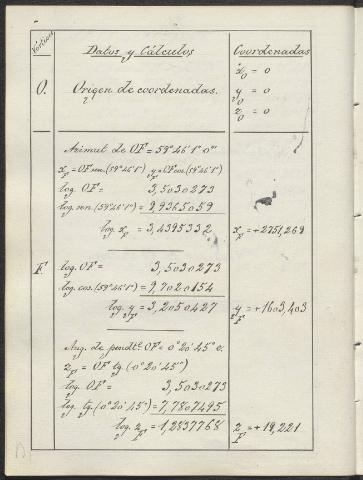 Vértices Datos y Cálculos Coordenadas
O. Origen de coordenadas.
x_O = 0
y_O = 0
z_O = 0
Azimut de OF = 59°46'1" 0"
x_F = OF sen. (59°46'1") y_F = OF cos. (59°46'1")
log. OF = 3,5030273
log. sen. (59°46'1") = 9,9365059
log. x_F = 3,4395332 x_F = +2751,269
F. log. OF = 3,5030273
log. cos. (59°46'1") = 9,7020154
log. y_F = 3,2050427 y_F = +1603,403
Ang. de pendte. OF = 0°20'45" e.
z_F = OF tg. (0°20'45")
log. OF = 3,5030273
log. tg. (0°20'45") = 7,7807495
log. z_F = 1,2837768 z_F = +19,221